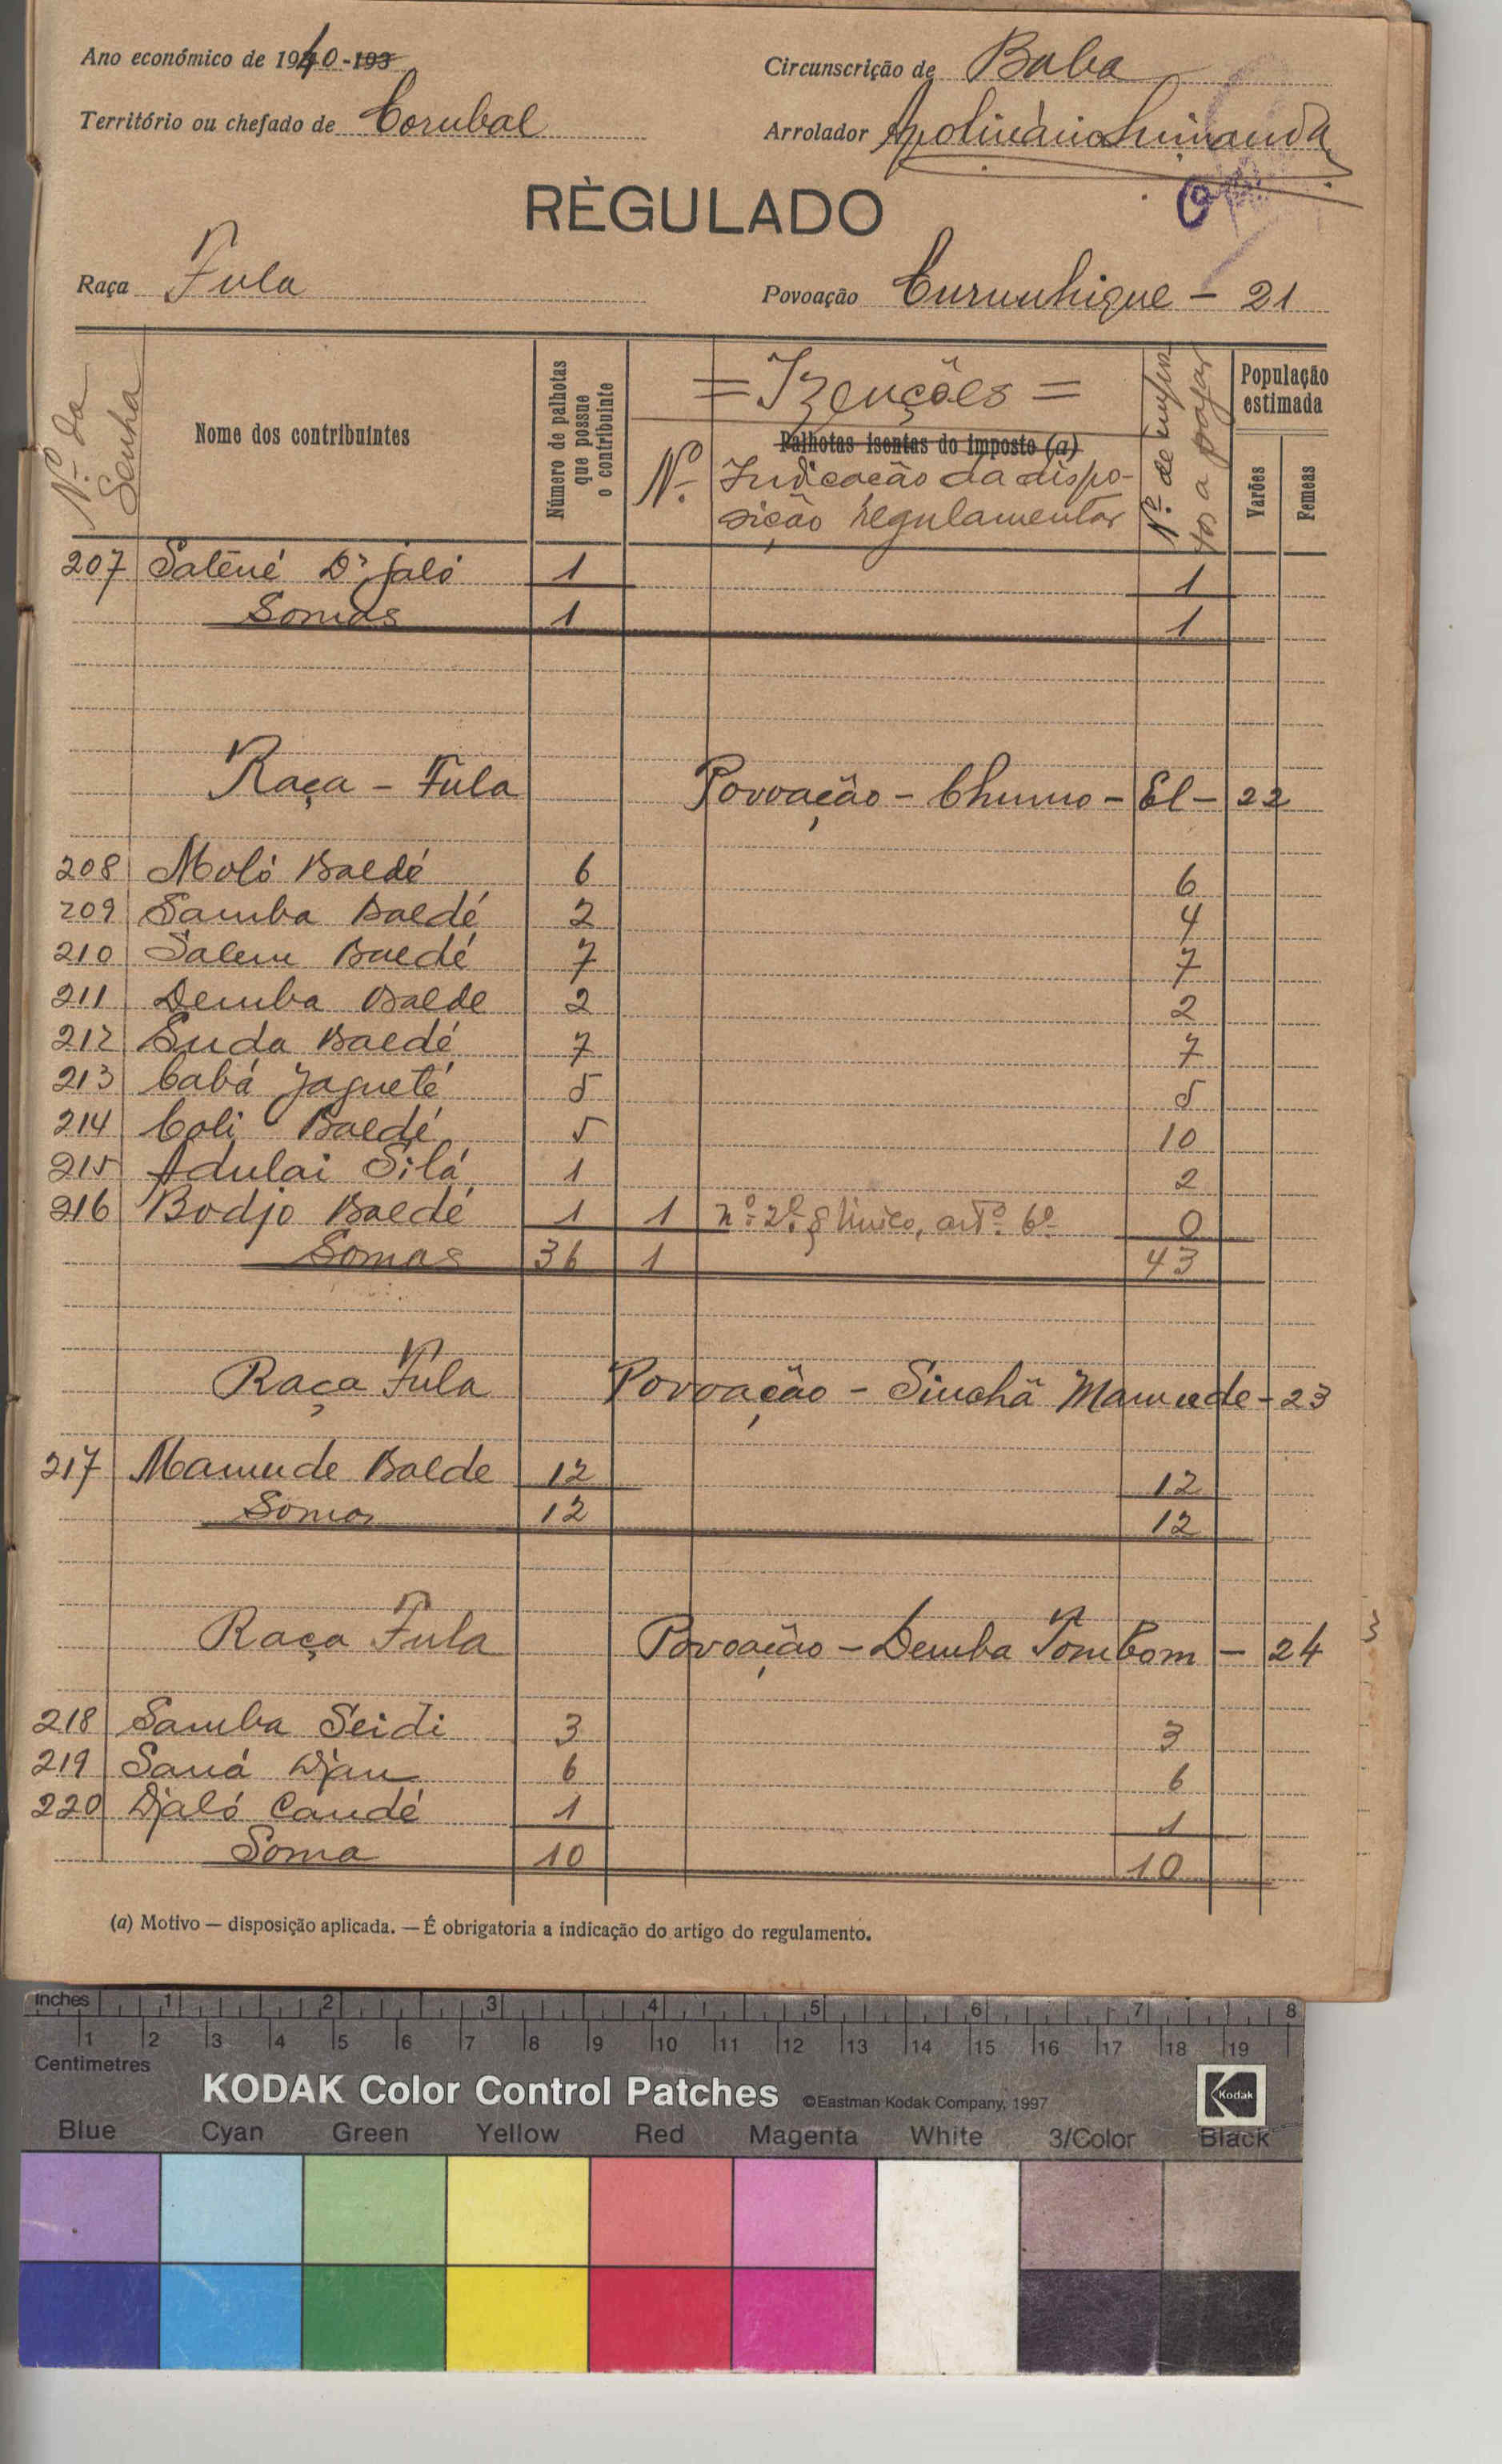 Ano económico de 1940-193
Circunscrição de Baba
Território ou chefado de Corubal
Arrolador
RÈGULADO
Raça Fula
Povoação Curunhique - 21
Nº da Senha
Nome dos contribuintes
Número de palhotas que possue o contribuinte
= Izenções =
Palhotas isentas do imposto (a)
Nº
Indicação da dispo-
sição regulamentar
Nº de impos-
tos a pagar
População estimada
Varões
Femeas
207 Saléné Djaló 1 1
Somas 1 1
Raça - Fula Povoação - Chumo - El - 22
208 Moló Baldé 6 6
209 Samba Baldé 2 4
210 Salem Baldé 7 7
211 Demba Balde 2 2
212 Suda Baldé 7 7
213 Cabá Jagueté 5 5
214 Coli Baldé 5 10
215 Adulai Silá 1 2
216 Bodjo Baldé 1 1 nº 2º § Unico, artº 6º 0
Somas 36 1 43
Raça Fula Povoação - Sinchã Mamude - 23
217 Mamude Balde 12 12
Soma 12 12
Raça Fula Povoação - Demba Tombom - 24
218 Samba Seidi 3 3
219 Saná Djau 6 6
220 Djaló Candé 1 1
Soma 10 10
(a) Motivo — disposição aplicada. — É obrigatoria a indicação do artigo do regulamento.
inches 1 2 3 4 5 6 7 8
1 2 3 4 5 6 7 8 9 10 11 12 13 14 15 16 17 18 19
Centimetres
KODAK Color Control Patches ©Eastman Kodak Company, 1997 Kodak
Blue Cyan Green Yellow Red Magenta White 3/Color Black